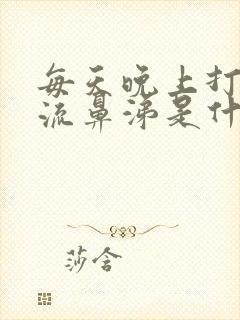 每天晚上打
流鼻涕是什
莎含